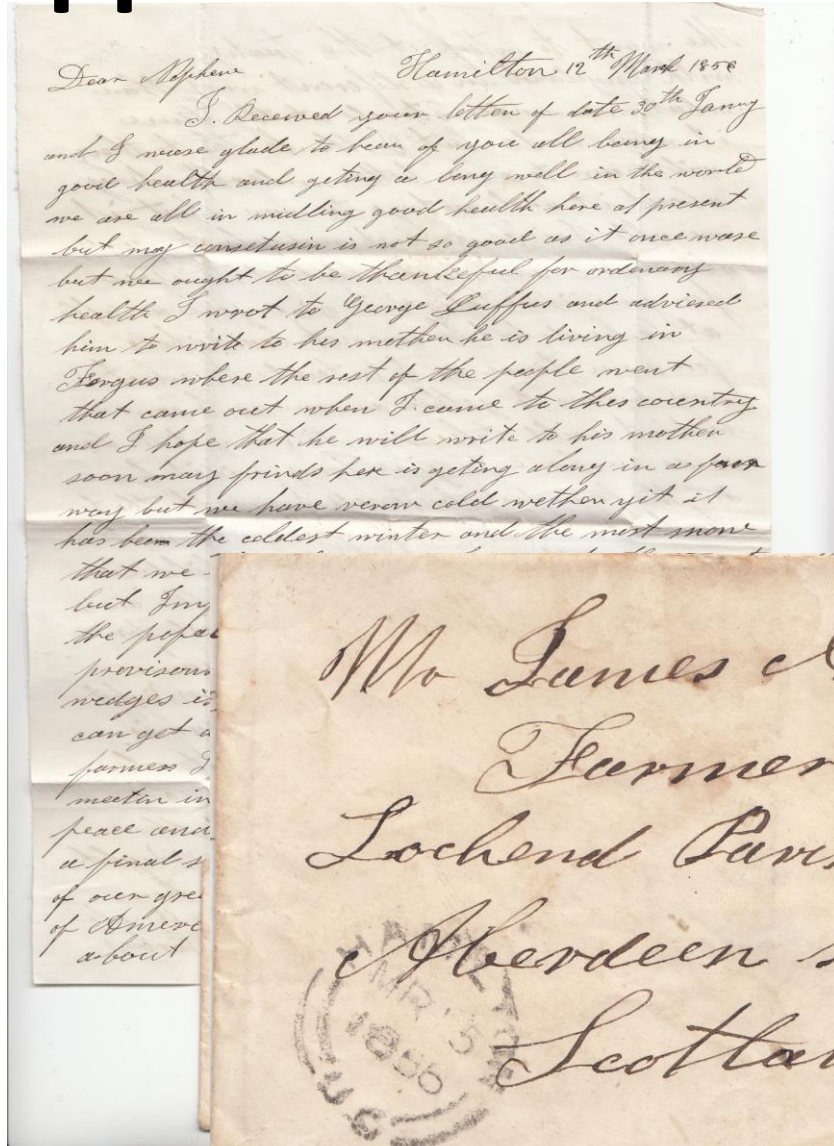 Hamilton 12th March 1856
Dear Nepheue
I Received your letter of date 30th Janry
and I wase glade to hear of you all being in
good health and geting a long well in the world
we are all in midling good health here at present
but may consetusin is not so good as it once wase
but we ought to be thankeful for ordenary
health I wrot to George Duffus and adviesed
him to write to his mother he is living in
Fergus where the rest of the people went
that came out when I came to thes country
and I hope that he will write to his mother
soon may frinds here is geting along in a fair
way but we have verow cold wether yit it
has been the coldest winter and the most snow
that we
but
the
provisons
wedges is
can get a
farmers I
meetin in
peace and
a final s
of our gre
of Americ
a bout
Mr James
Farmer
Lochend Paris
Aberdeen s
Scotlan
HAMILTON
MR 15
1856